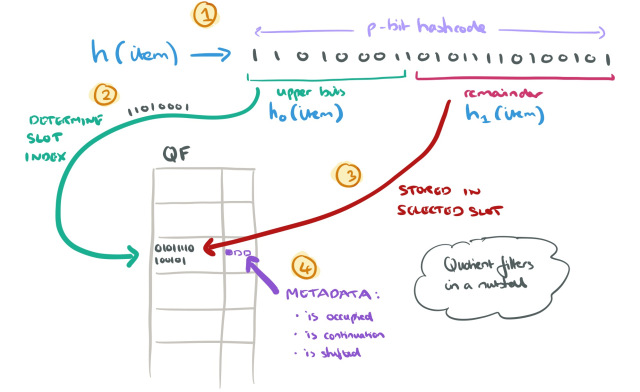 1
p-bit hashcode
h(item)
1 1 0 1 0 0 0 1 1 0 1 0 1 1 1 1 0 1 0 0 1 0 1
upper bits
remainder
h₀(item)
h₁(item)
2
11010001
DETERMINE
SLOT
INDEX
QF
3
STORED IN
SELECTED SLOT
01011110
100101
4
METADATA:
· is occupied
· is continuation
· is shifted
Quotient filters
in a nutshell